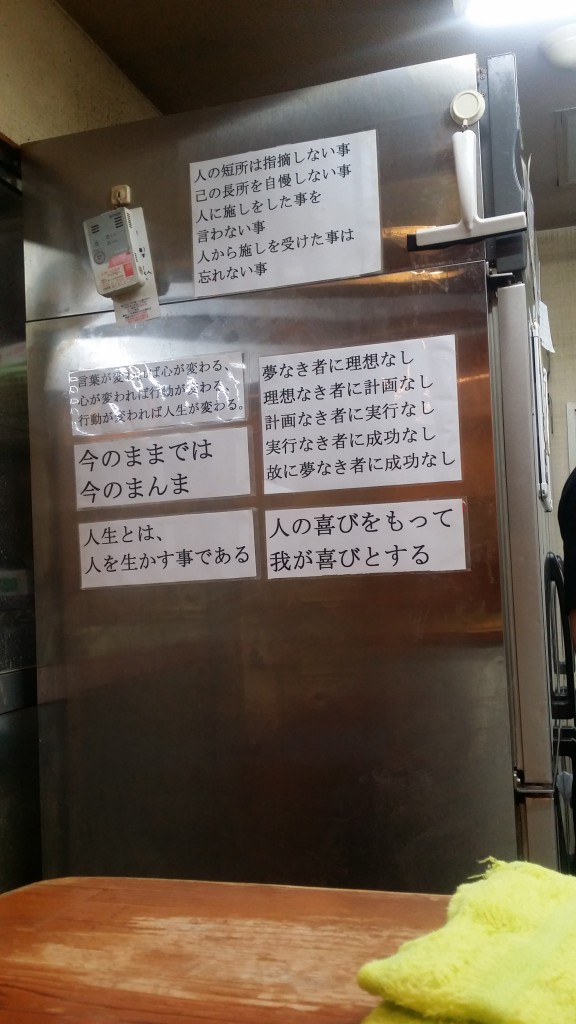 人の短所は指摘しない事
己の長所を自慢しない事
人に施しをした事を
言わない事
人から施しを受けた事は
忘れない事
言葉が変われば心が変わる、
心が変われば行動が変わる、
行動が変われば人生が変わる。
夢なき者に理想なし
理想なき者に計画なし
計画なき者に実行なし
実行なき者に成功なし
故に夢なき者に成功なし
今のままでは
今のまんま
人生とは、
人を生かす事である
人の喜びをもって
我が喜びとする